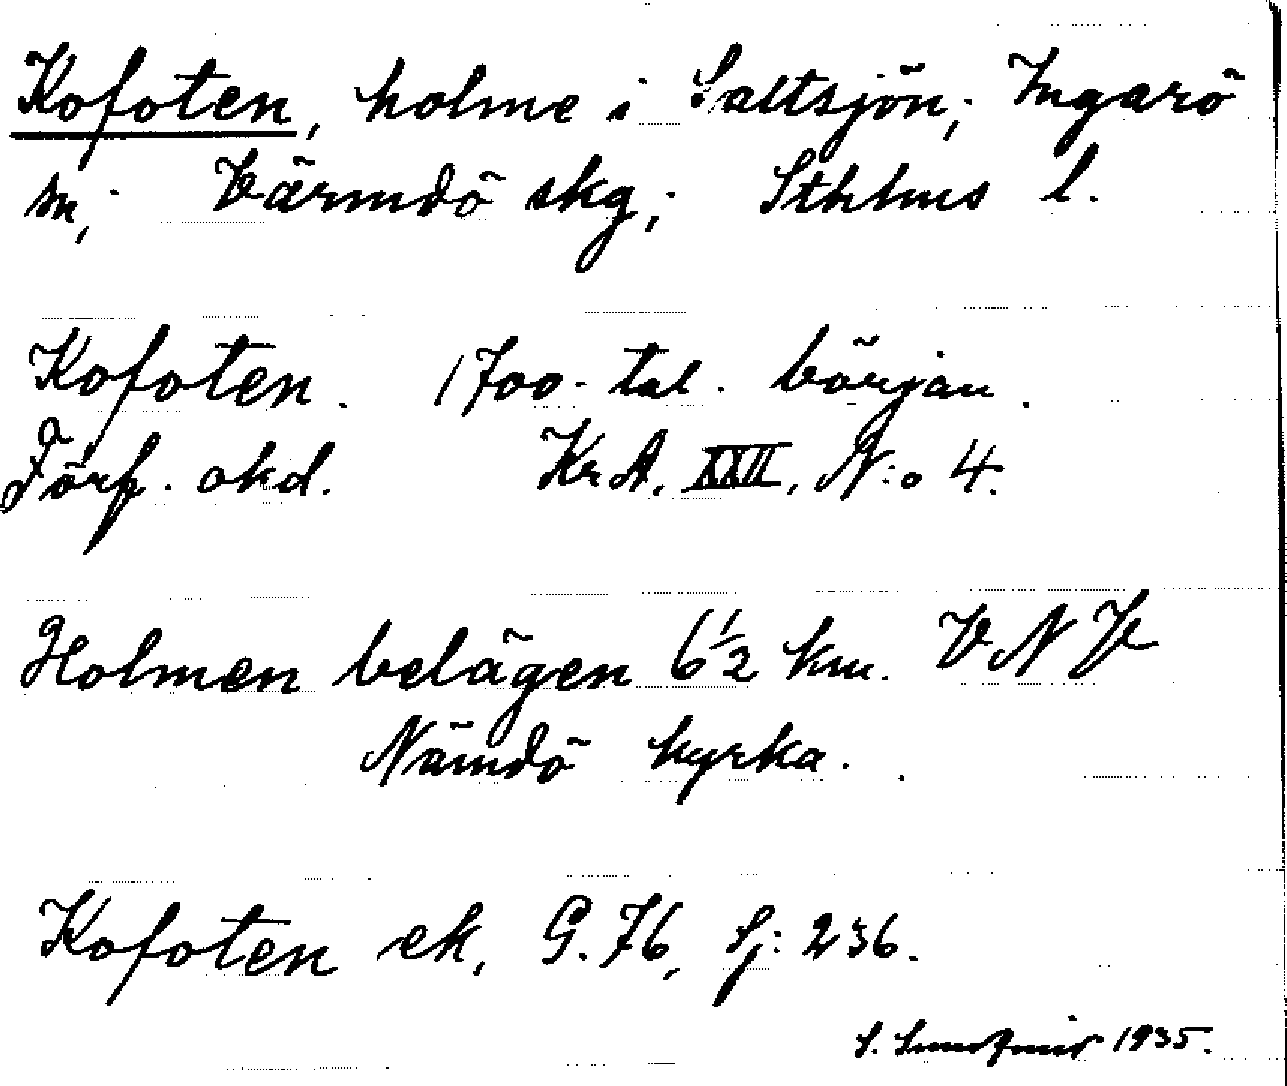 Kofoten, holme i Saltsjön; Ingarö
sn; Värmdö skg; Sthlms l.
Kofoten. 1700-tal. början.
Förf. okd. KrA. XXVII, N:o 4.
Holmen belägen 6½ km. VNV
Nämdö kyrka.
Kofoten ek, G. 76, Sj: 236.
S. 1935.